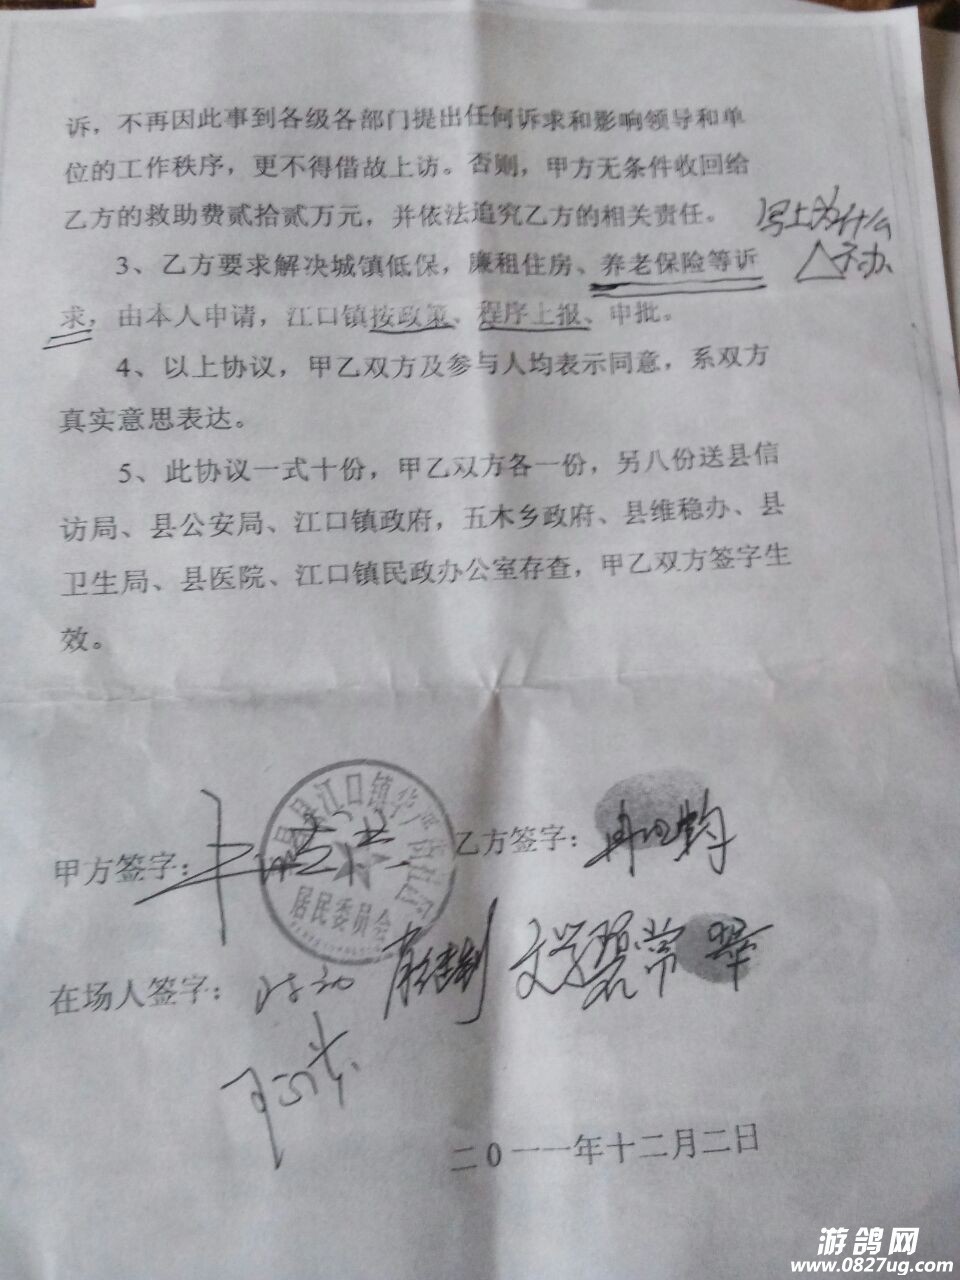 诉，不再因此事到各级各部门提出任何诉求和影响领导和单
位的工作秩序，更不得借故上访。否则，甲方无条件收回给
乙方的救助费贰拾贰万元，并依法追究乙方的相关责任。
写上为什么
不办
3、乙方要求解决城镇低保，廉租住房、养老保险等诉
求，由本人申请，江口镇按政策、程序上报、申批。
4、以上协议，甲乙双方及参与人均表示同意，系双方
真实意思表达。
5、此协议一式十份，甲乙双方各一份，另八份送县信
访局、县公安局、江口镇政府，五木乡政府、县维稳办、县
卫生局、县医院、江口镇民政办公室存查，甲乙双方签字生
效。
江口镇华严
居民委员会
甲方签字：
乙方签字：
在场人签字：
二0一一年十二月二日
游鸽网
www.0827ug.com